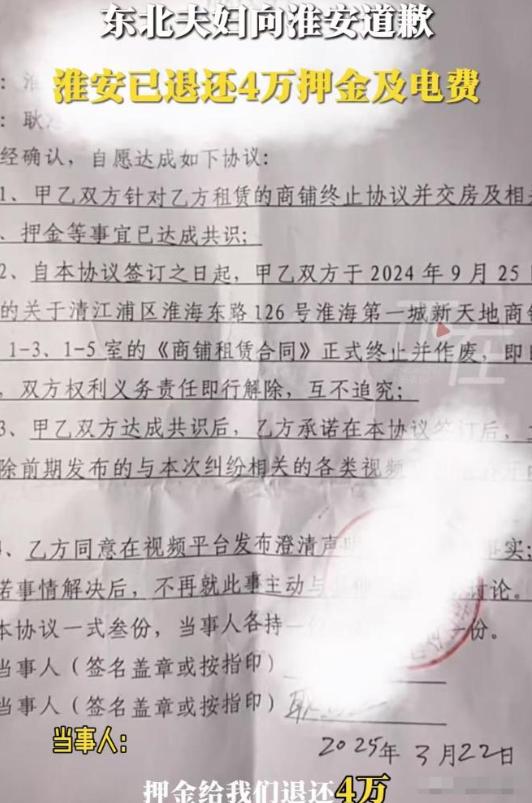 东北夫妇向淮安道歉
淮安已退还4万押金及电费
：淮
：耿
经确认，自愿达成如下协议：
1、甲乙双方针对乙方租赁的商铺终止协议并交房及相关
、押金等事宜已达成共识；
2、自本协议签订之日起，甲乙双方于2024年9月25日
的关于清江浦区淮海东路126号淮海第一城新天地商铺
1-3、1-5室的《商铺租赁合同》正式终止并作废，即日
，双方权利义务责任即行解除，互不追究；
3、甲乙双方达成共识后，乙方承诺在本协议签订后，
除前期发布的与本次纠纷相关的各类视频
、乙方同意在视频平台发布澄清声明 事实；
诺事情解决后，不再就此事主动与 讨论。
本协议一式叁份，当事人各持一份 一份。
当事人（签名盖章或按指印）
当事人（签名盖章或按指印） 耿
当事人：
2025年3月22日
押金给我们退还4万